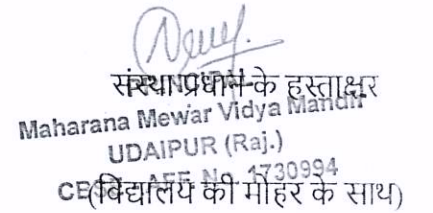 संस्था प्रधान के हस्ताक्षर
Maharana Mewar Vidya Mandir
UDAIPUR (Raj.)
1730994
(विद्यालय की मोहर के साथ)